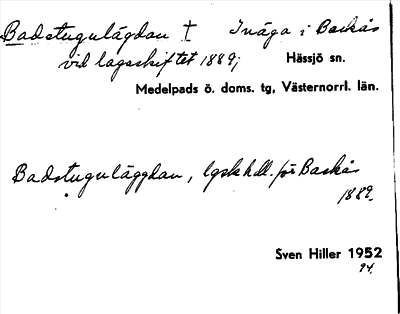 Badstugulägdan † Inäga i Backås
vid lagaskiftet 1889;
Hässjö sn.
Medelpads ö. doms. tg, Västernorrl. län.
Badstuguläggdan, lgskhdl. för Backås
1889.
Sven Hiller 1952
94.